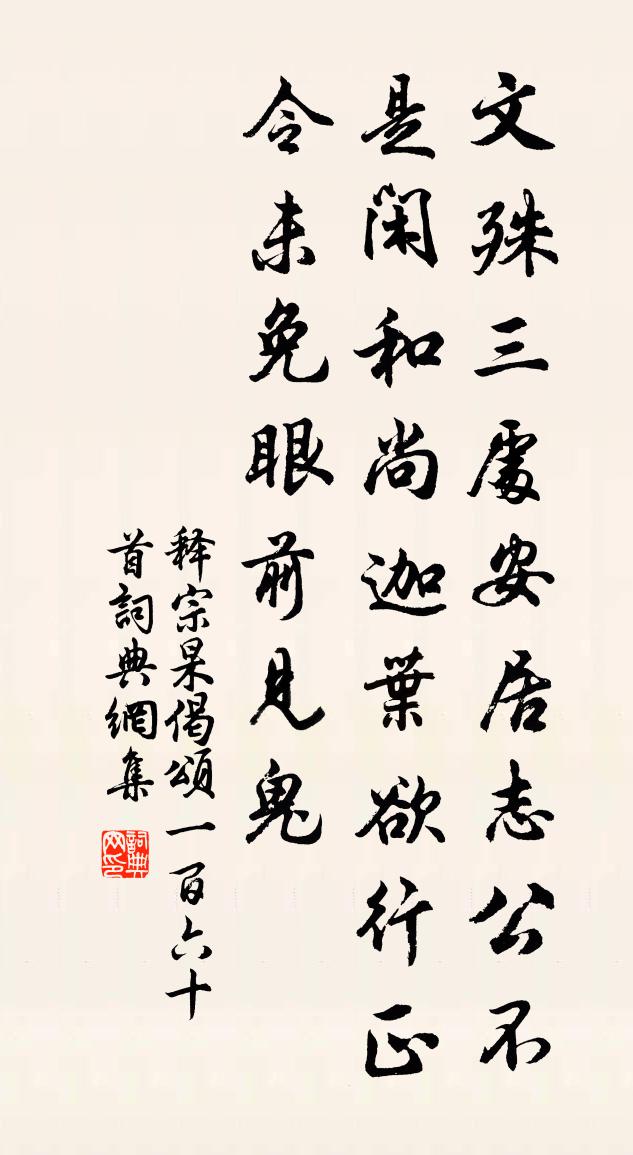 文殊三處安居志公不
是閑和尚迦葉欲行正
令未免眼前見鬼
释宗杲偈頌一百六十
首詞典網集
詞典网印